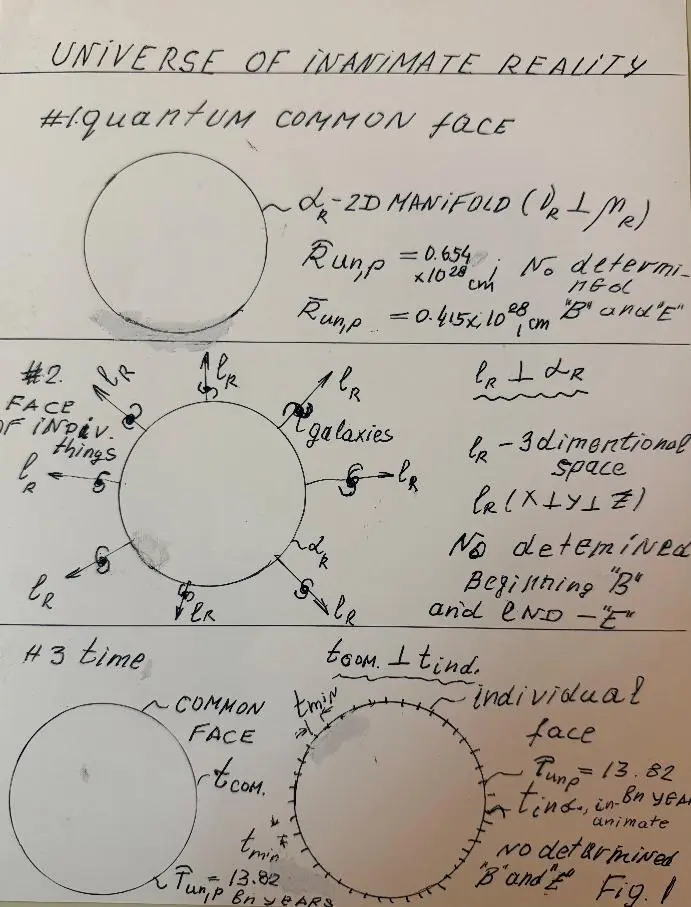 UNIVERSE OF INANIMATE REALITY
#1. quantum COMMON face
α_R - 2D MANIFOLD (
R̄un,p = 0.654 x10^28 cm; No determi-
nED
R̄un,p = 0.415x10^28, cm "B" and "E"
#2.
FACE
OF INDiV.
things
ℓ_R
ℓ_R
ℓ_R
galaxies
ℓ_R
ℓ_R
ℓ_R
ℓ_R
ℓ_R
α_R
ℓ_R ⊥ α_R
ℓ_R - 3 dimentional
space
ℓ_R (X⊥Y⊥Z)
No detemined
Beginning "B"
and END - "E"
#3 time
COMMON
FACE
t COM.
T̄un,p = 13.82
Bn YEARS
t COM. ⊥ t ind.
t min
t min
individual
face
T̄un,p = 13.82
Bn YEAR
t ind., in-
animate
No determined
"B" and "E"
Fig. 1